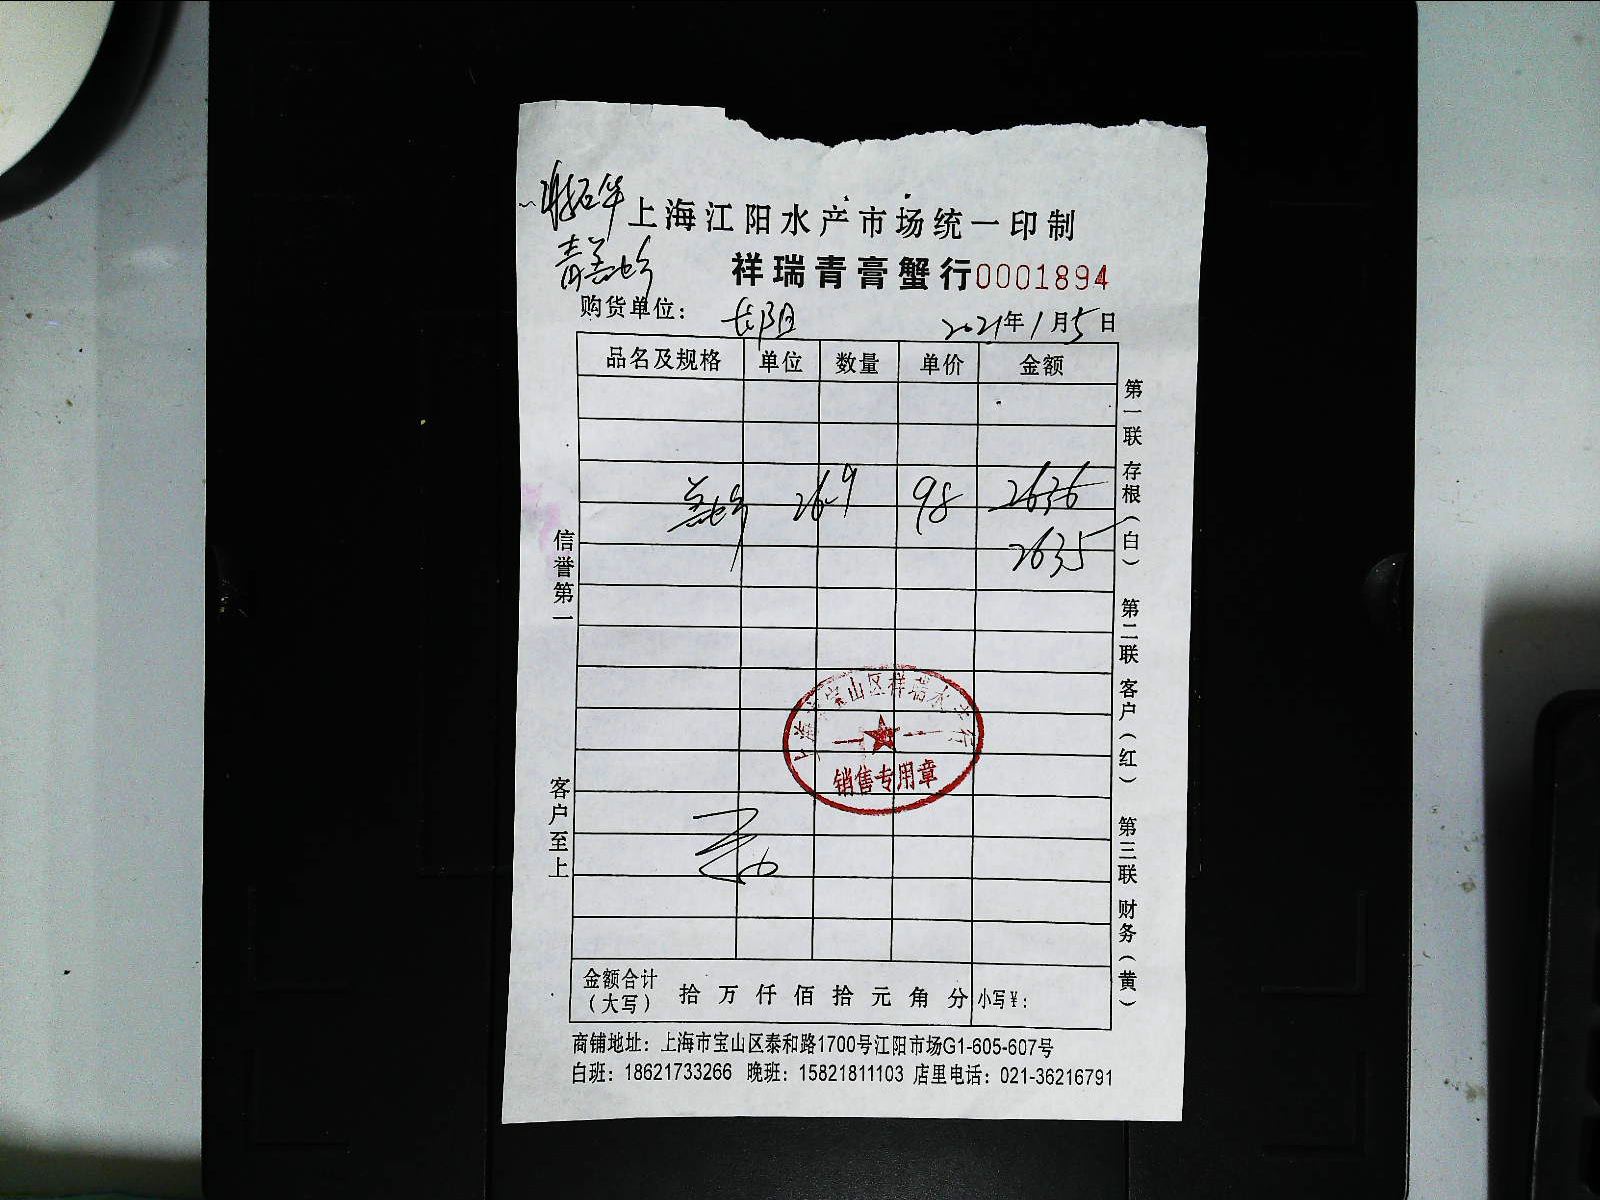 上海江阳水产市场统一印制
祥瑞青膏蟹行0001894
购货单位： 长阳
2021年1月5日
品名及规格 单位 数量 单价 金额
26.9 98 2636
2635
上海市宝山区祥瑞水产行
销售专用章
金额合计（大写） 拾万仟佰拾元角分 小写¥：
商铺地址：上海市宝山区泰和路1700号江阳市场G1-605-607号
白班：18621733266 晚班：15821811103 店里电话：021-36216791
信誉第一
客户至上
第一联 存根（白）
第二联 客户（红）
第三联 财务（黄）